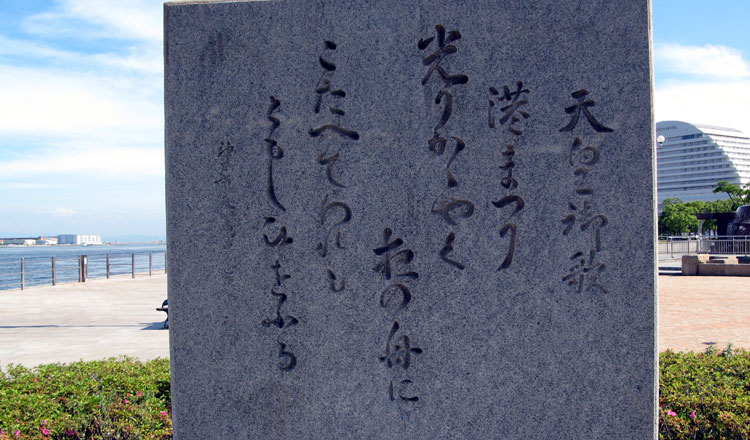 天皇御歌
港まつり
光りかゝやく
夜の舟に
こたへてわれも
ともしひをふる